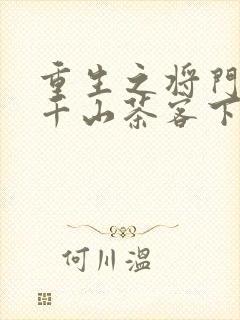 重生之将门
千山茶客下
何川温